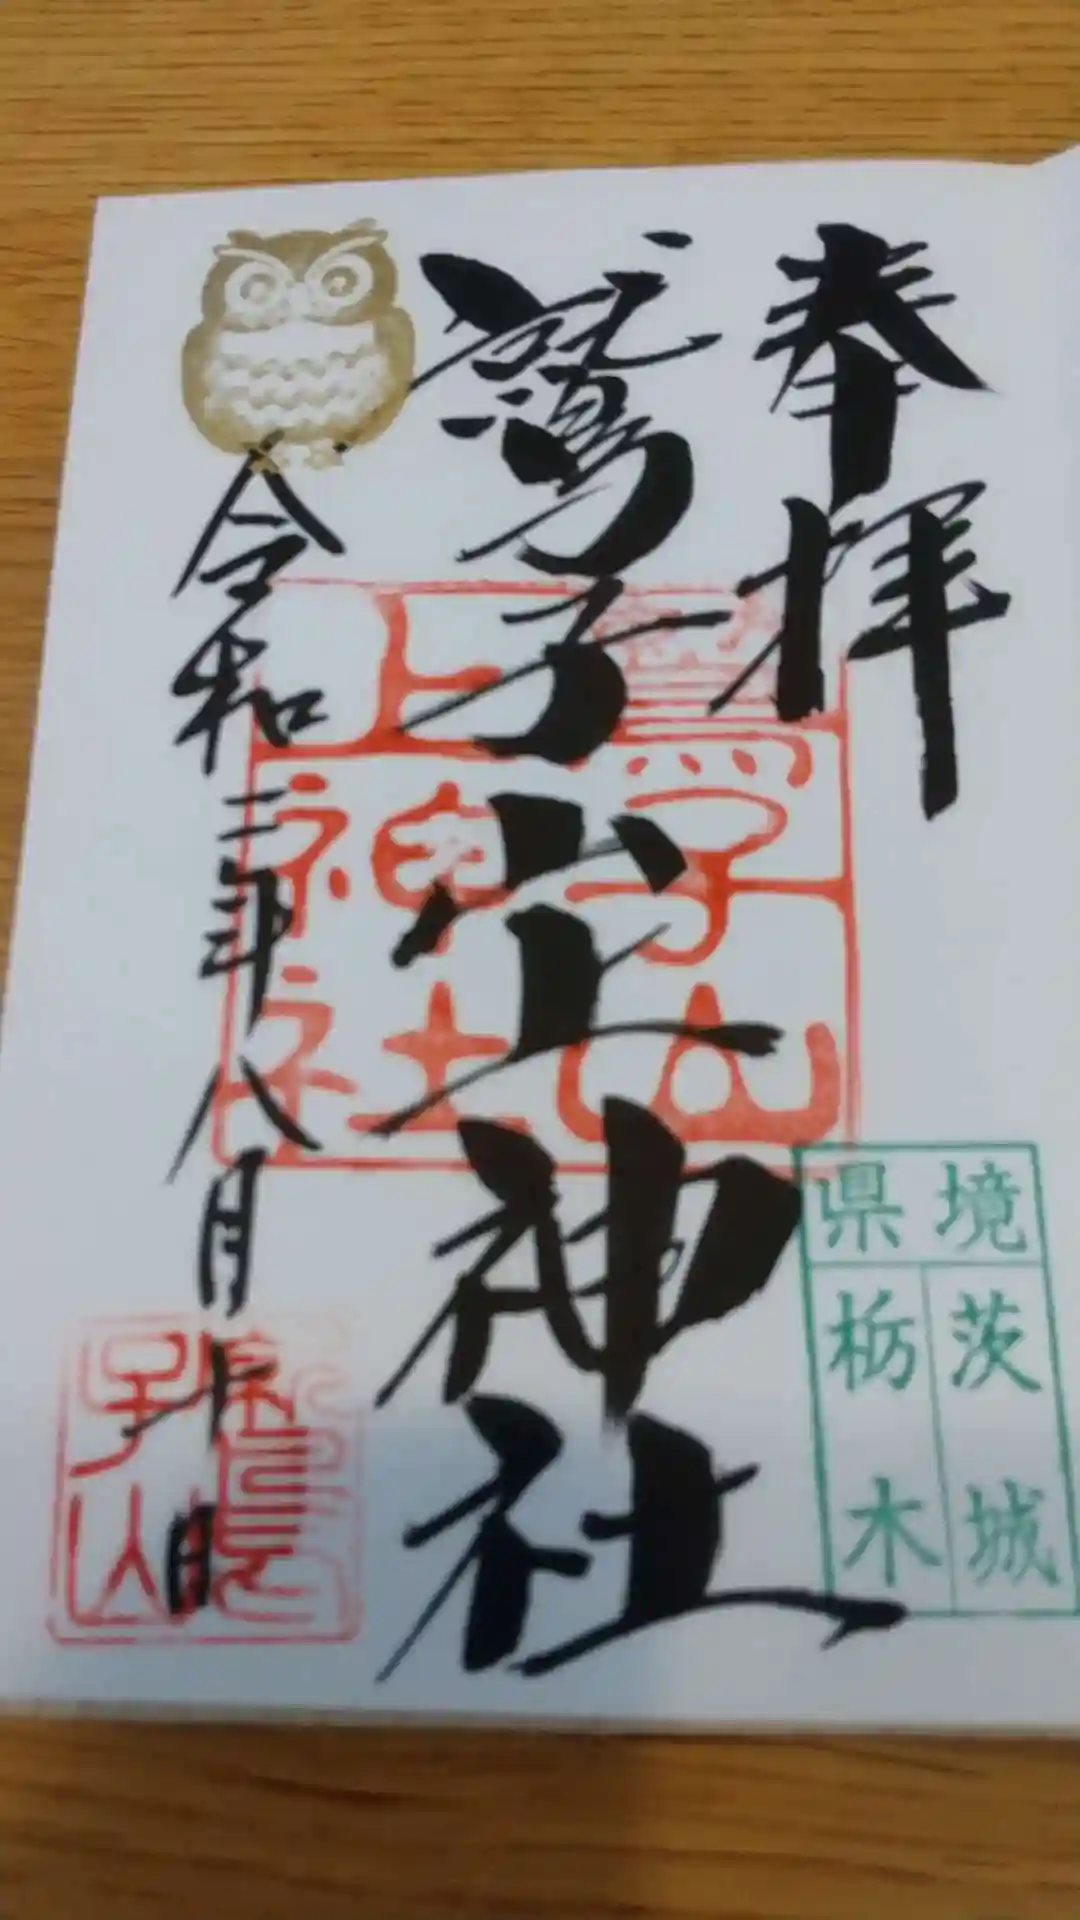 奉拝
鷲子山上神社
令和二年八月十日
鷲子山
上神社
県境
茨城
栃木